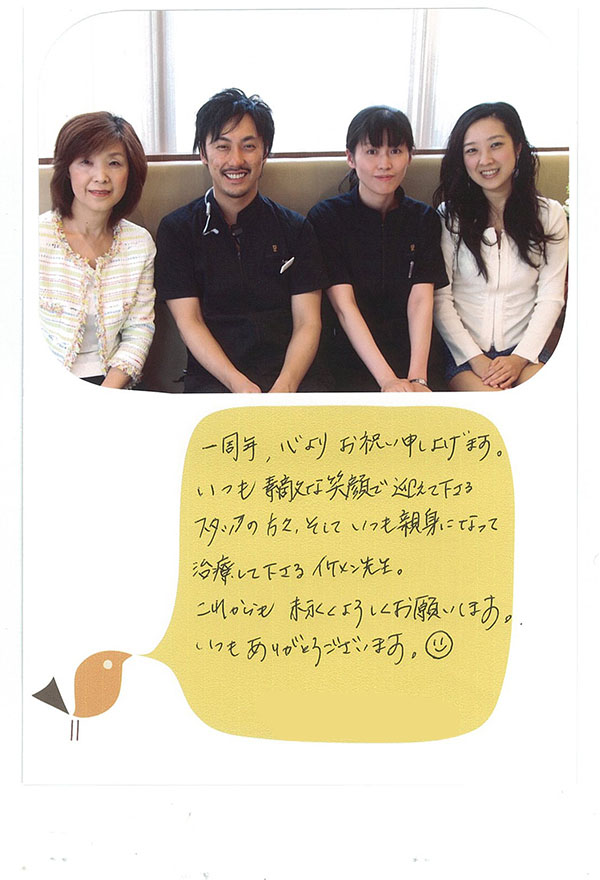 一周年, 心より お祝い申し上げます。
いつも 素敵な笑顔で 迎えて下さる
スタッフの方々, そして いつも親身になって
治療して下さる イケメン先生。
これからも 末永くよろしくお願いします。
いつも ありがとうございます。